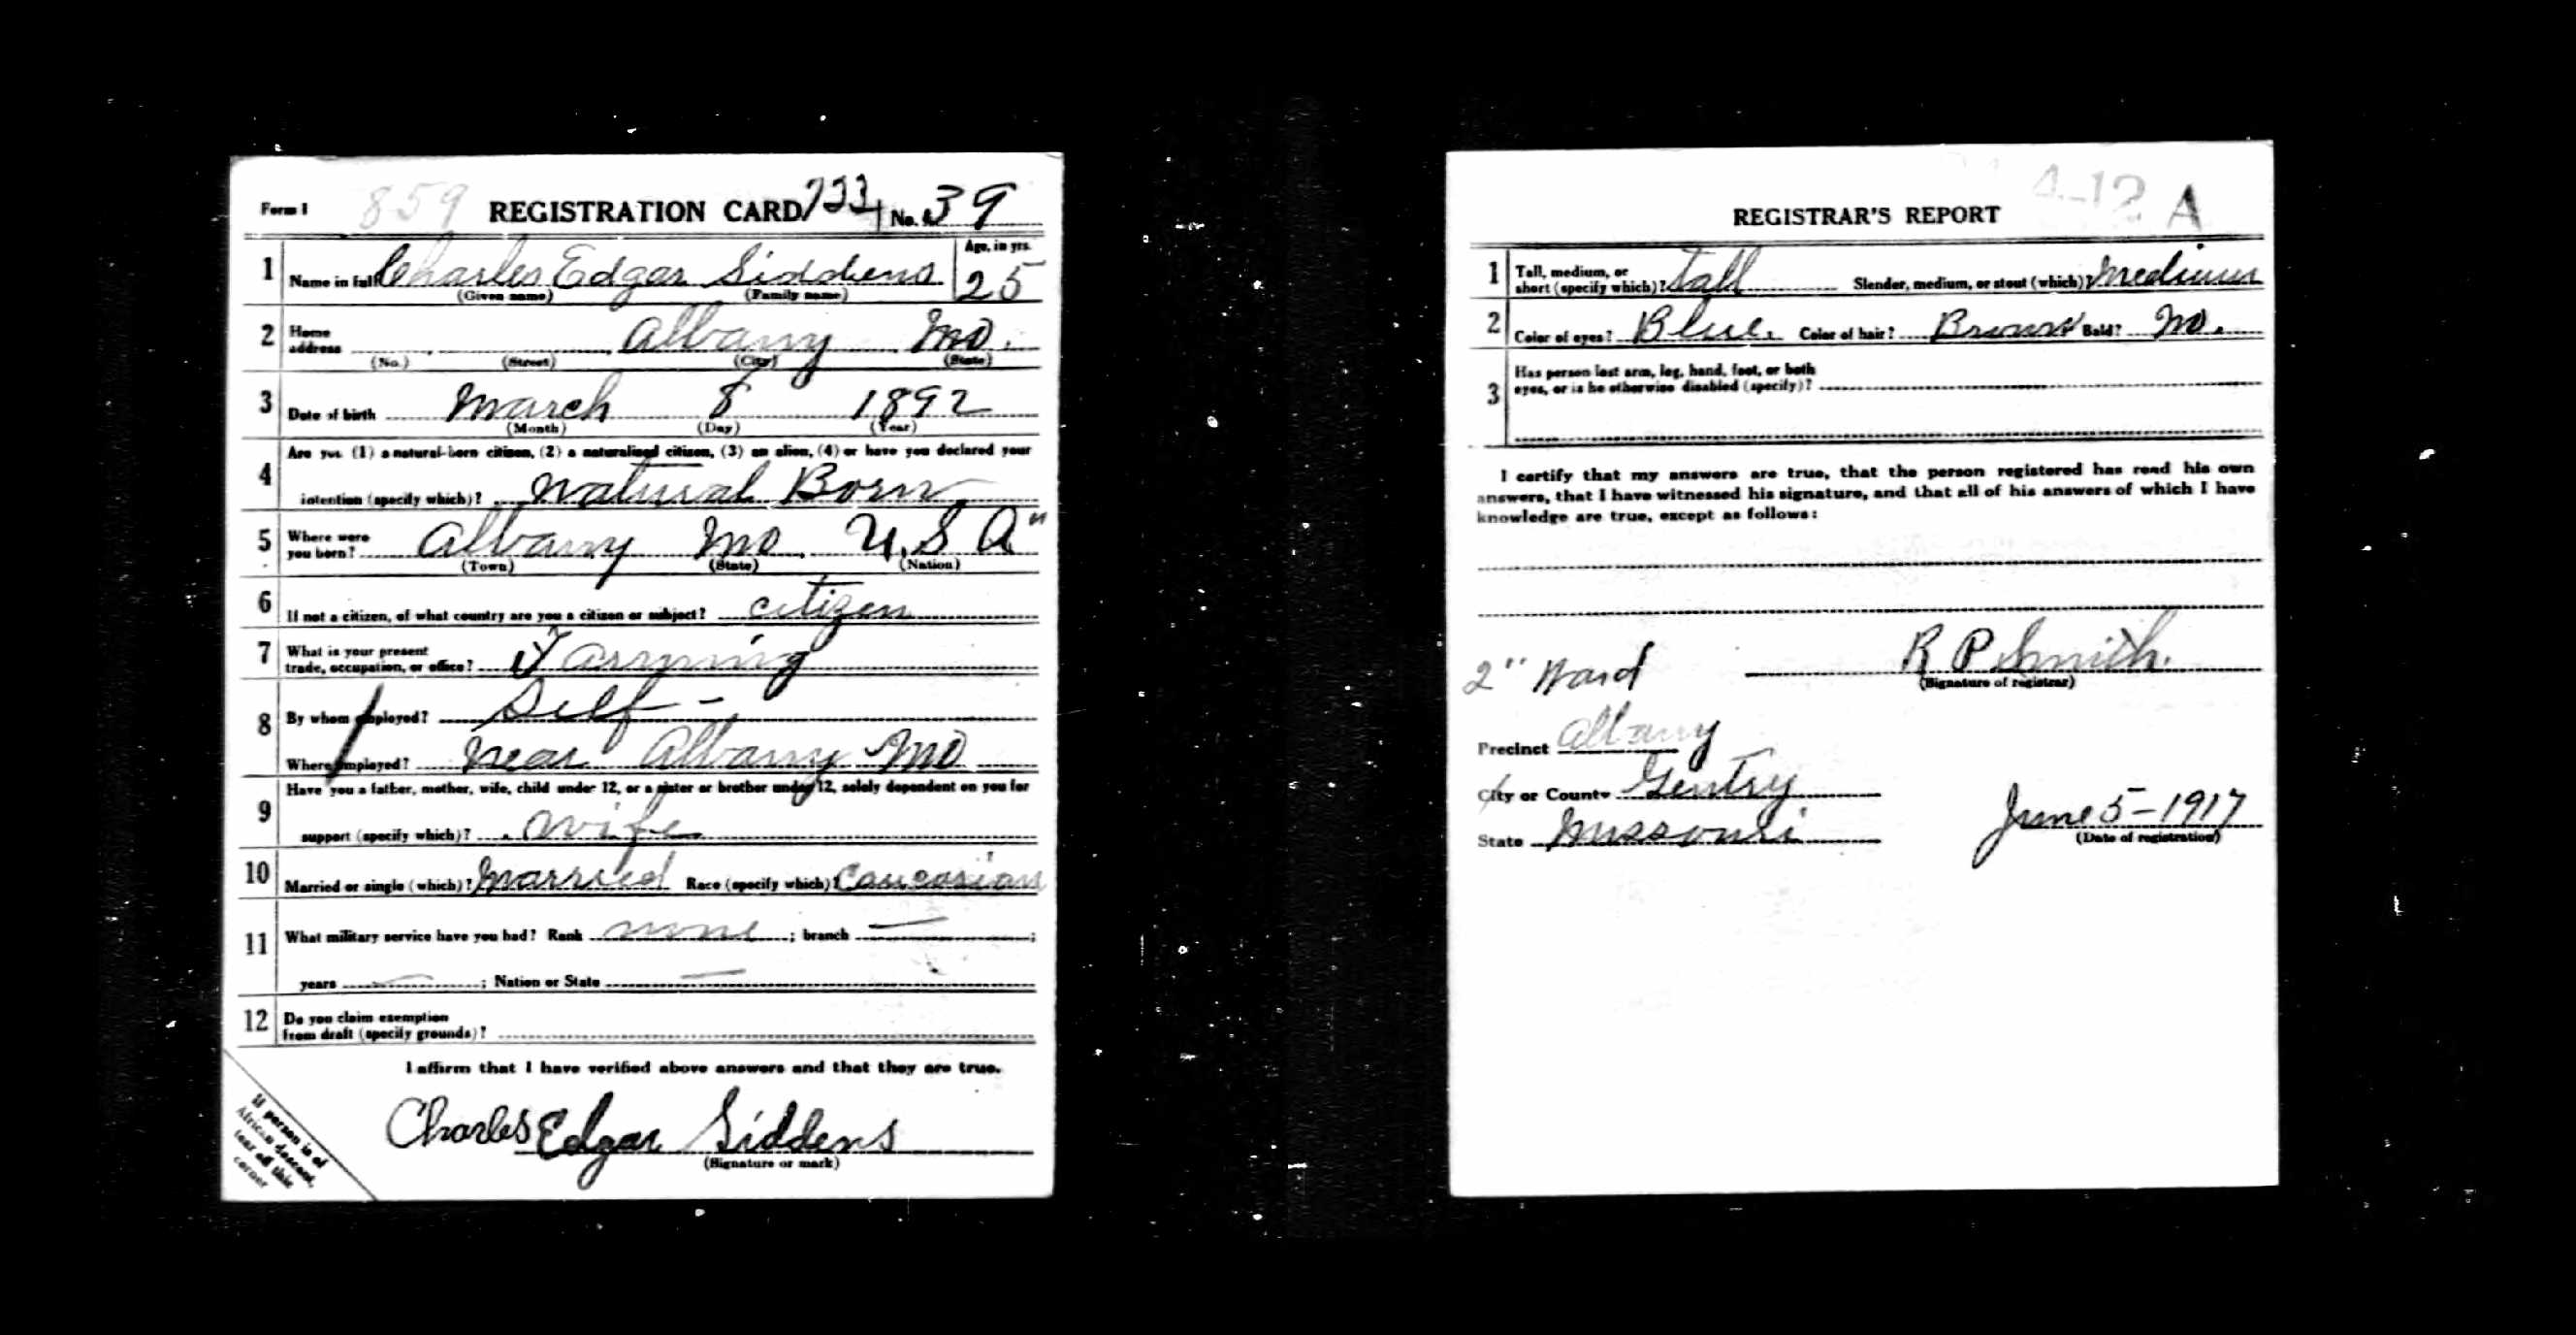 Form 1 859 REGISTRATION CARD 733 No. 39
1 Name in full Charles Edgar Siddens Age, in yrs. 25
(Given name) (Family name)
2 Home address Albany Mo.
(No.) (Street) (City) (State)
3 Date of birth March 8 1892
(Month) (Day) (Year)
4 Are you (1) a natural-born citizen, (2) a naturalized citizen, (3) an alien, (4) or have you declared your
intention (specify which)? Natural Born
5 Where were you born? Albany Mo. U.S A"
(Town) (State) (Nation)
6 If not a citizen, of what country are you a citizen or subject? citizen
7 What is your present trade, occupation, or office? Farming
8 By whom employed? Self -
Where employed? near Albany Mo
9 Have you a father, mother, wife, child under 12, or a sister or brother under 12, solely dependent on you for
support (specify which)? wife
10 Married or single (which)? Married Race (specify which)? Caucasian
11 What military service have you had? Rank none ; branch — ;
years — ; Nation or State —
12 Do you claim exemption
from draft (specify grounds)?
I affirm that I have verified above answers and that they are true.
Charles Edgar Siddens
(Signature or mark)
If person is of
African descent,
tear off this
corner
4-12 A
REGISTRAR'S REPORT
1 Tall, medium, or short (specify which)? Tall Slender, medium, or stout (which)? Medium
2 Color of eyes? Blue Color of hair? Brown Bald? No.
3 Has person lost arm, leg, hand, foot, or both
eyes, or is he otherwise disabled (specify)?
I certify that my answers are true, that the person registered has read his own
answers, that I have witnessed his signature, and that all of his answers of which I have
knowledge are true, except as follows:
R P Smith.
(Signature of registrar)
2" Ward
Precinct Albany
City or County Gentry
State Missouri
June 5-1917
(Date of registration)